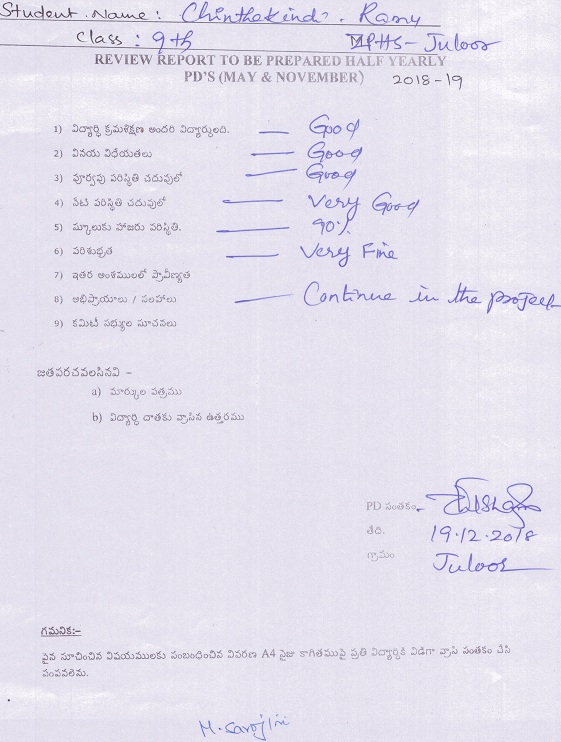 Student Name : Chinthakindi. Ramu
Class : 9th ZPHS - Juloor
REVIEW REPORT TO BE PREPARED HALF YEARLY
PD'S (MAY & NOVEMBER) 2018-19
1) విద్యార్థి క్రమశిక్షణ అందరి విద్యార్థులది. — Good
2) వినయ విధేయతలు — Good
3) పూర్వపు పరిస్థితి చదువులో — Good
4) నేటి పరిస్థితి చదువులో — Very Good
5) స్కూలుకు హాజరు పరిస్థితి. — 90%
6) పరిశుభ్రత — Very Fine
7) ఇతర అంశములలో ప్రావీణ్యత
8) అభిప్రాయాలు / సలహాలు — Continue in the project
9) కమిటీ సభ్యుల సూచనలు
జతపరచవలసినవి -
a) మార్కుల పత్రము
b) విద్యార్థి దాతకు వ్రాసిన ఉత్తరము
PD సంతకం
తేది. 19.12.2018
గ్రామం Juloor
గమనిక:-
పైన సూచించిన విషయములకు సంబంధించిన వివరణ A4 సైజు కాగితముపై ప్రతి విద్యార్థికి విడిగా వ్రాసి సంతకం చేసి
పంపవలెను.
M. Sarojini